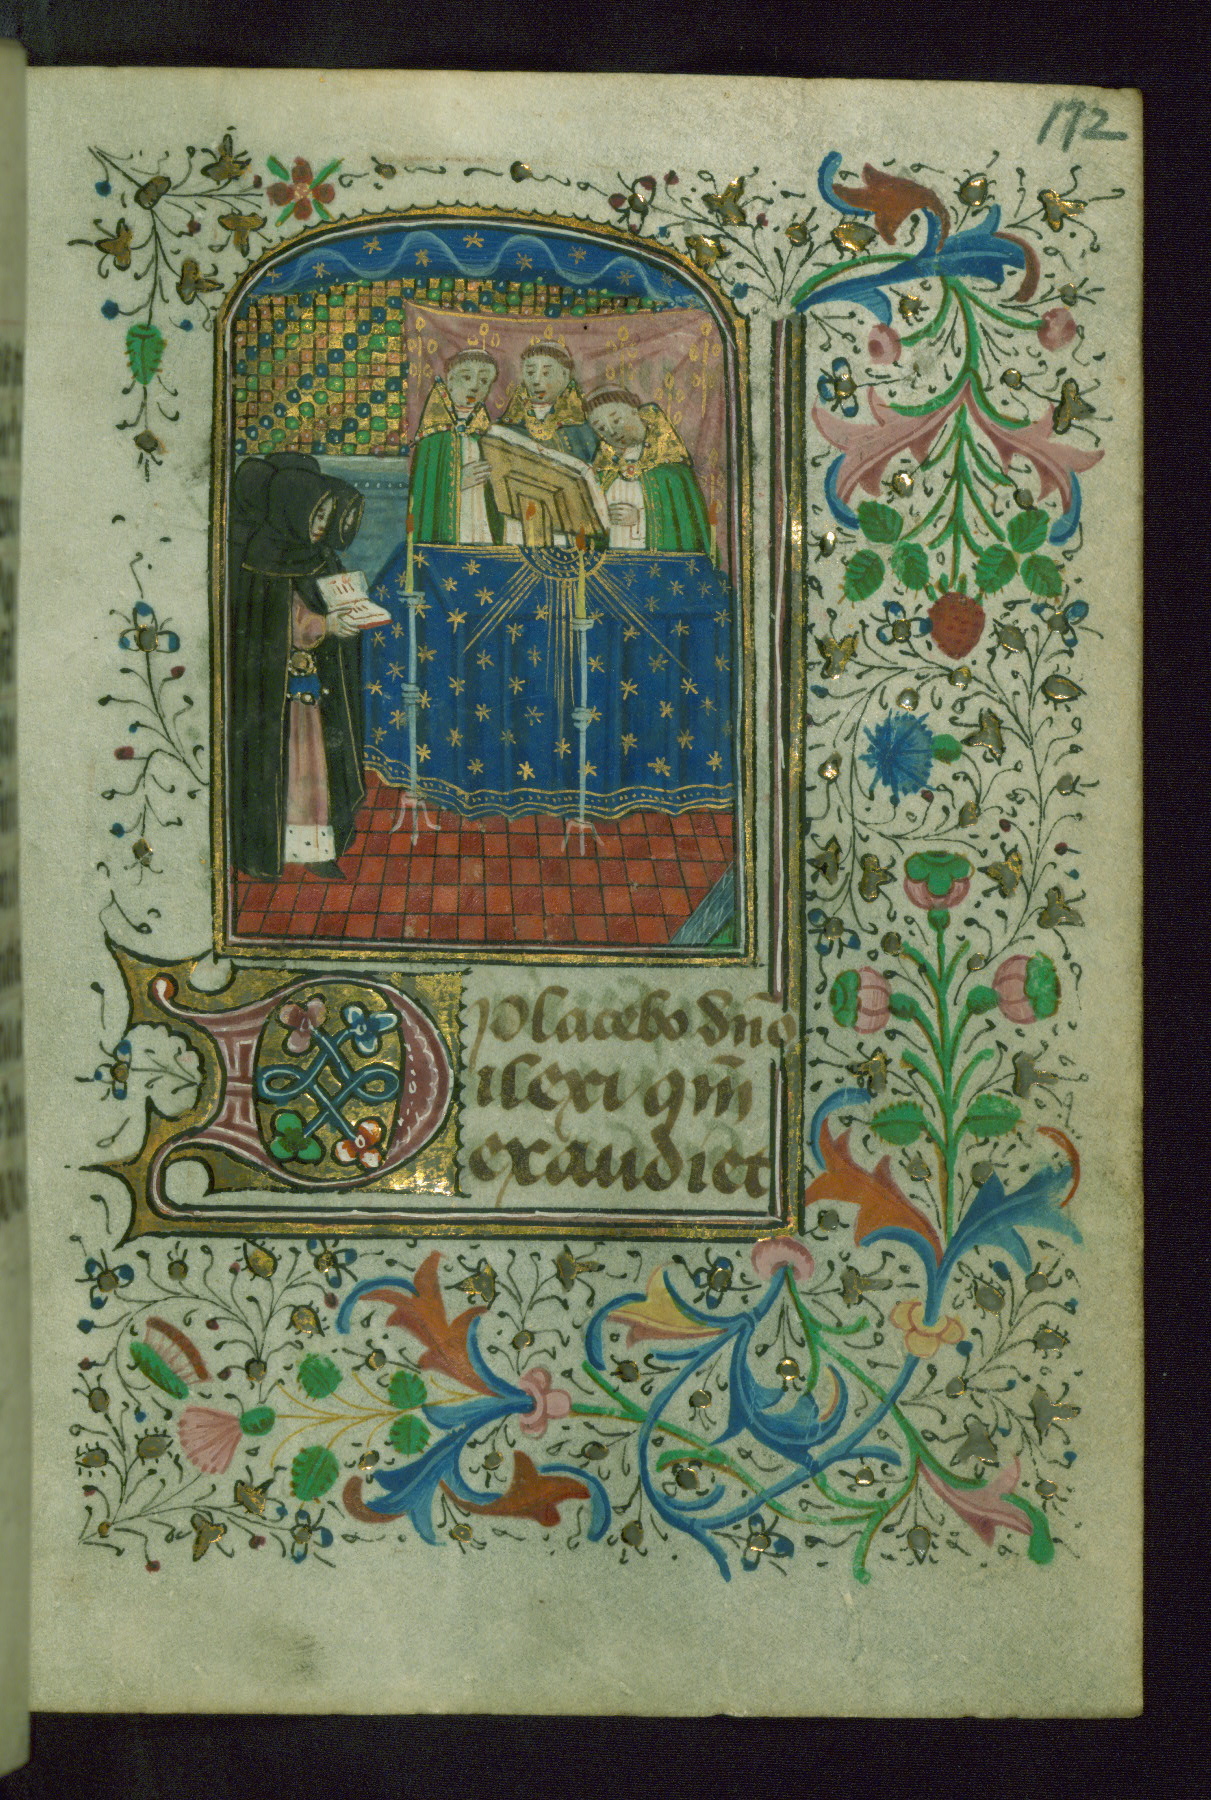 172
placebo dn̄o
Dilexi qm̄
exaudiet